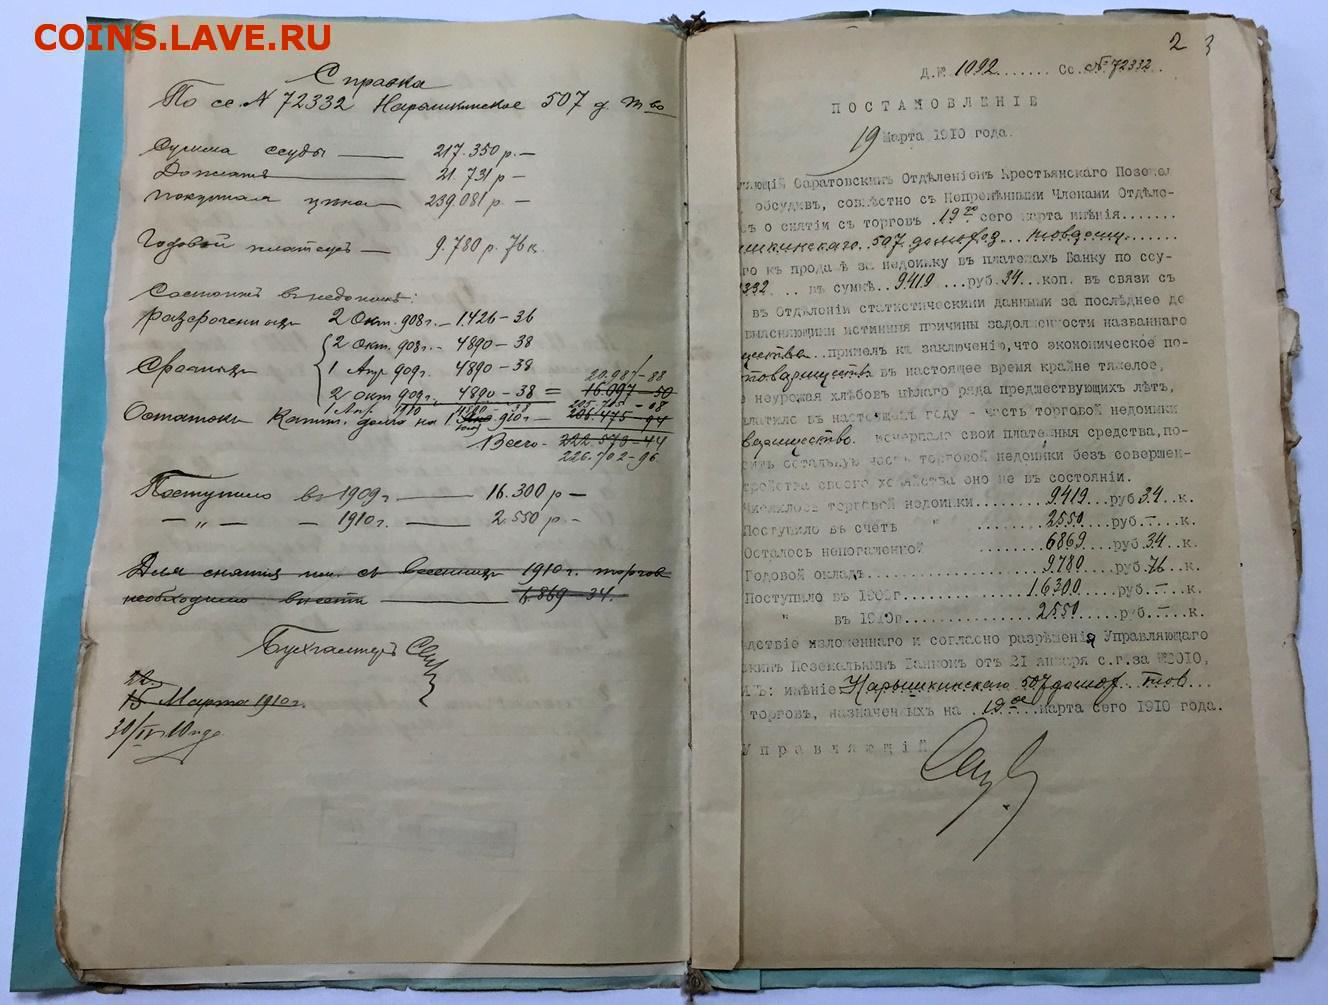 COINS.LAVE.RU
Справка
По сс. N 72332 Нарышкинское 507 д. т во
Сумма ссуды — 217.350 р. —
Доплата — 21.731 р —
покупная цѣна 239.081 р. —
Годовой платежъ — 9.780 р. 76 к.
Состоитъ въ недоимкѣ:
разсроченныхъ 2 Окт. 908 г. — 1.426 – 36
2 Окт. 908 г. — 4890 – 38
Срочныхъ 1 Апр. 909 г. 4890 – 38 20.987 – 88
2 окт 909 г. 4890 – 38 = 16.097 – 50
1 Апр. 1910 4890 38 205.715 – 08
Остатокъ Капит. долга на 1 910 г — 206.475 – 94
Всего - 222.573 – 44
226.702 – 96
Поступило въ 1909 г — 16.300 р —
— „ — — 1910 г. — 2.550 р —
Для снятія им. съ весеннихъ 1910 г. торговъ
необходимо внести — 6.869 – 34.
Бухгалтеръ
15 Марта 1910 г.
30/IV 10 года
2 3
Д.№ 1092....... Сс. № 72332..
ПОСТАНОВЛЕНІЕ
19 Марта 1910 года.
ляющій Саратовскимъ Отдѣленіемъ Крестьянскаго Поземел
обсудивъ, совмѣстно съ Непремѣнными Членами Отдѣле-
ъ о снятіи съ торговъ .19го сего марта имѣнія.......
ышкинскаго 507 домохоз... товарищ.......
го къ продажѣ за недоимку въ платежахъ Банку по ссу-
2332 ... въ суммѣ..9419....руб.34.коп. въ связи съ
въ Отдѣленіи статистическими данными за послѣднее де
выясняющими истинныя причины задолженности названнаго
щества..пришелъ къ заключенію,что экономическое по-
товарищества въ настоящее время крайне тяжелое,
е неурожая хлѣбовъ цѣлаго ряда предшествующихъ лѣтъ,
латило въ настоящемъ году - часть торговой недоимки
варищество. исчерпало свои платежныя средства,по-
сить остальную часть торговой недоимки безъ совершен-
тройства своего хозяйства оно не въ состояніи.
Числилось торговой недоимки......9419....руб 34..к.
Поступило въ счетъ " .......2550....руб.—..к.
Осталось непогашенной .......6869....руб.34..к.
Годовой окладъ...............9780....руб.76..к.
Поступило въ 1909г............16300....руб.—..к.
" въ 1910г............2550....руб.—..к.
дствіе изложеннаго и согласно разрѣшенія Управляющаго
скимъ Поземельнымъ Банкомъ отъ 21 января с.г.за №2010,
ИЛЪ: имѣніе Нарышкинскаго 507 домох. тов
торговъ, назначенныхъ на .19ое....марта сего 1910 года.
Управляющій